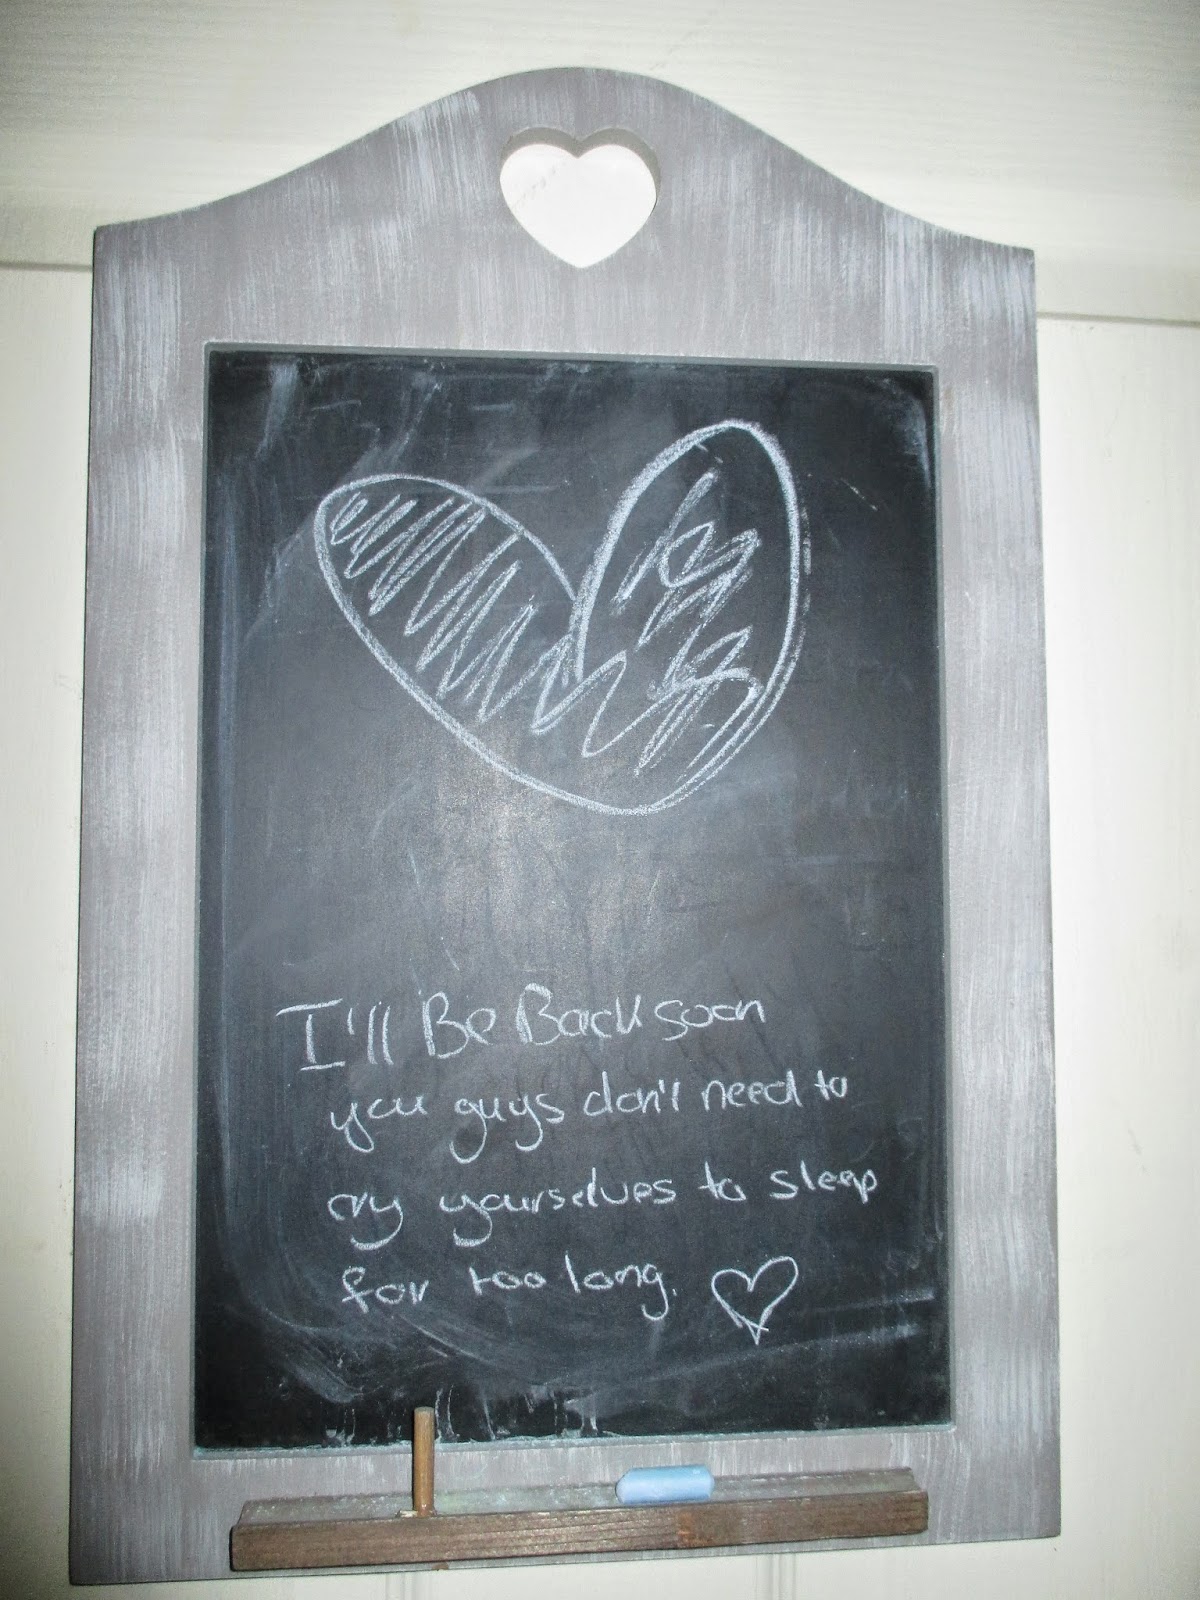 I'll Be Back soon
you guys don't need to
cry yourselves to sleep
for too long.